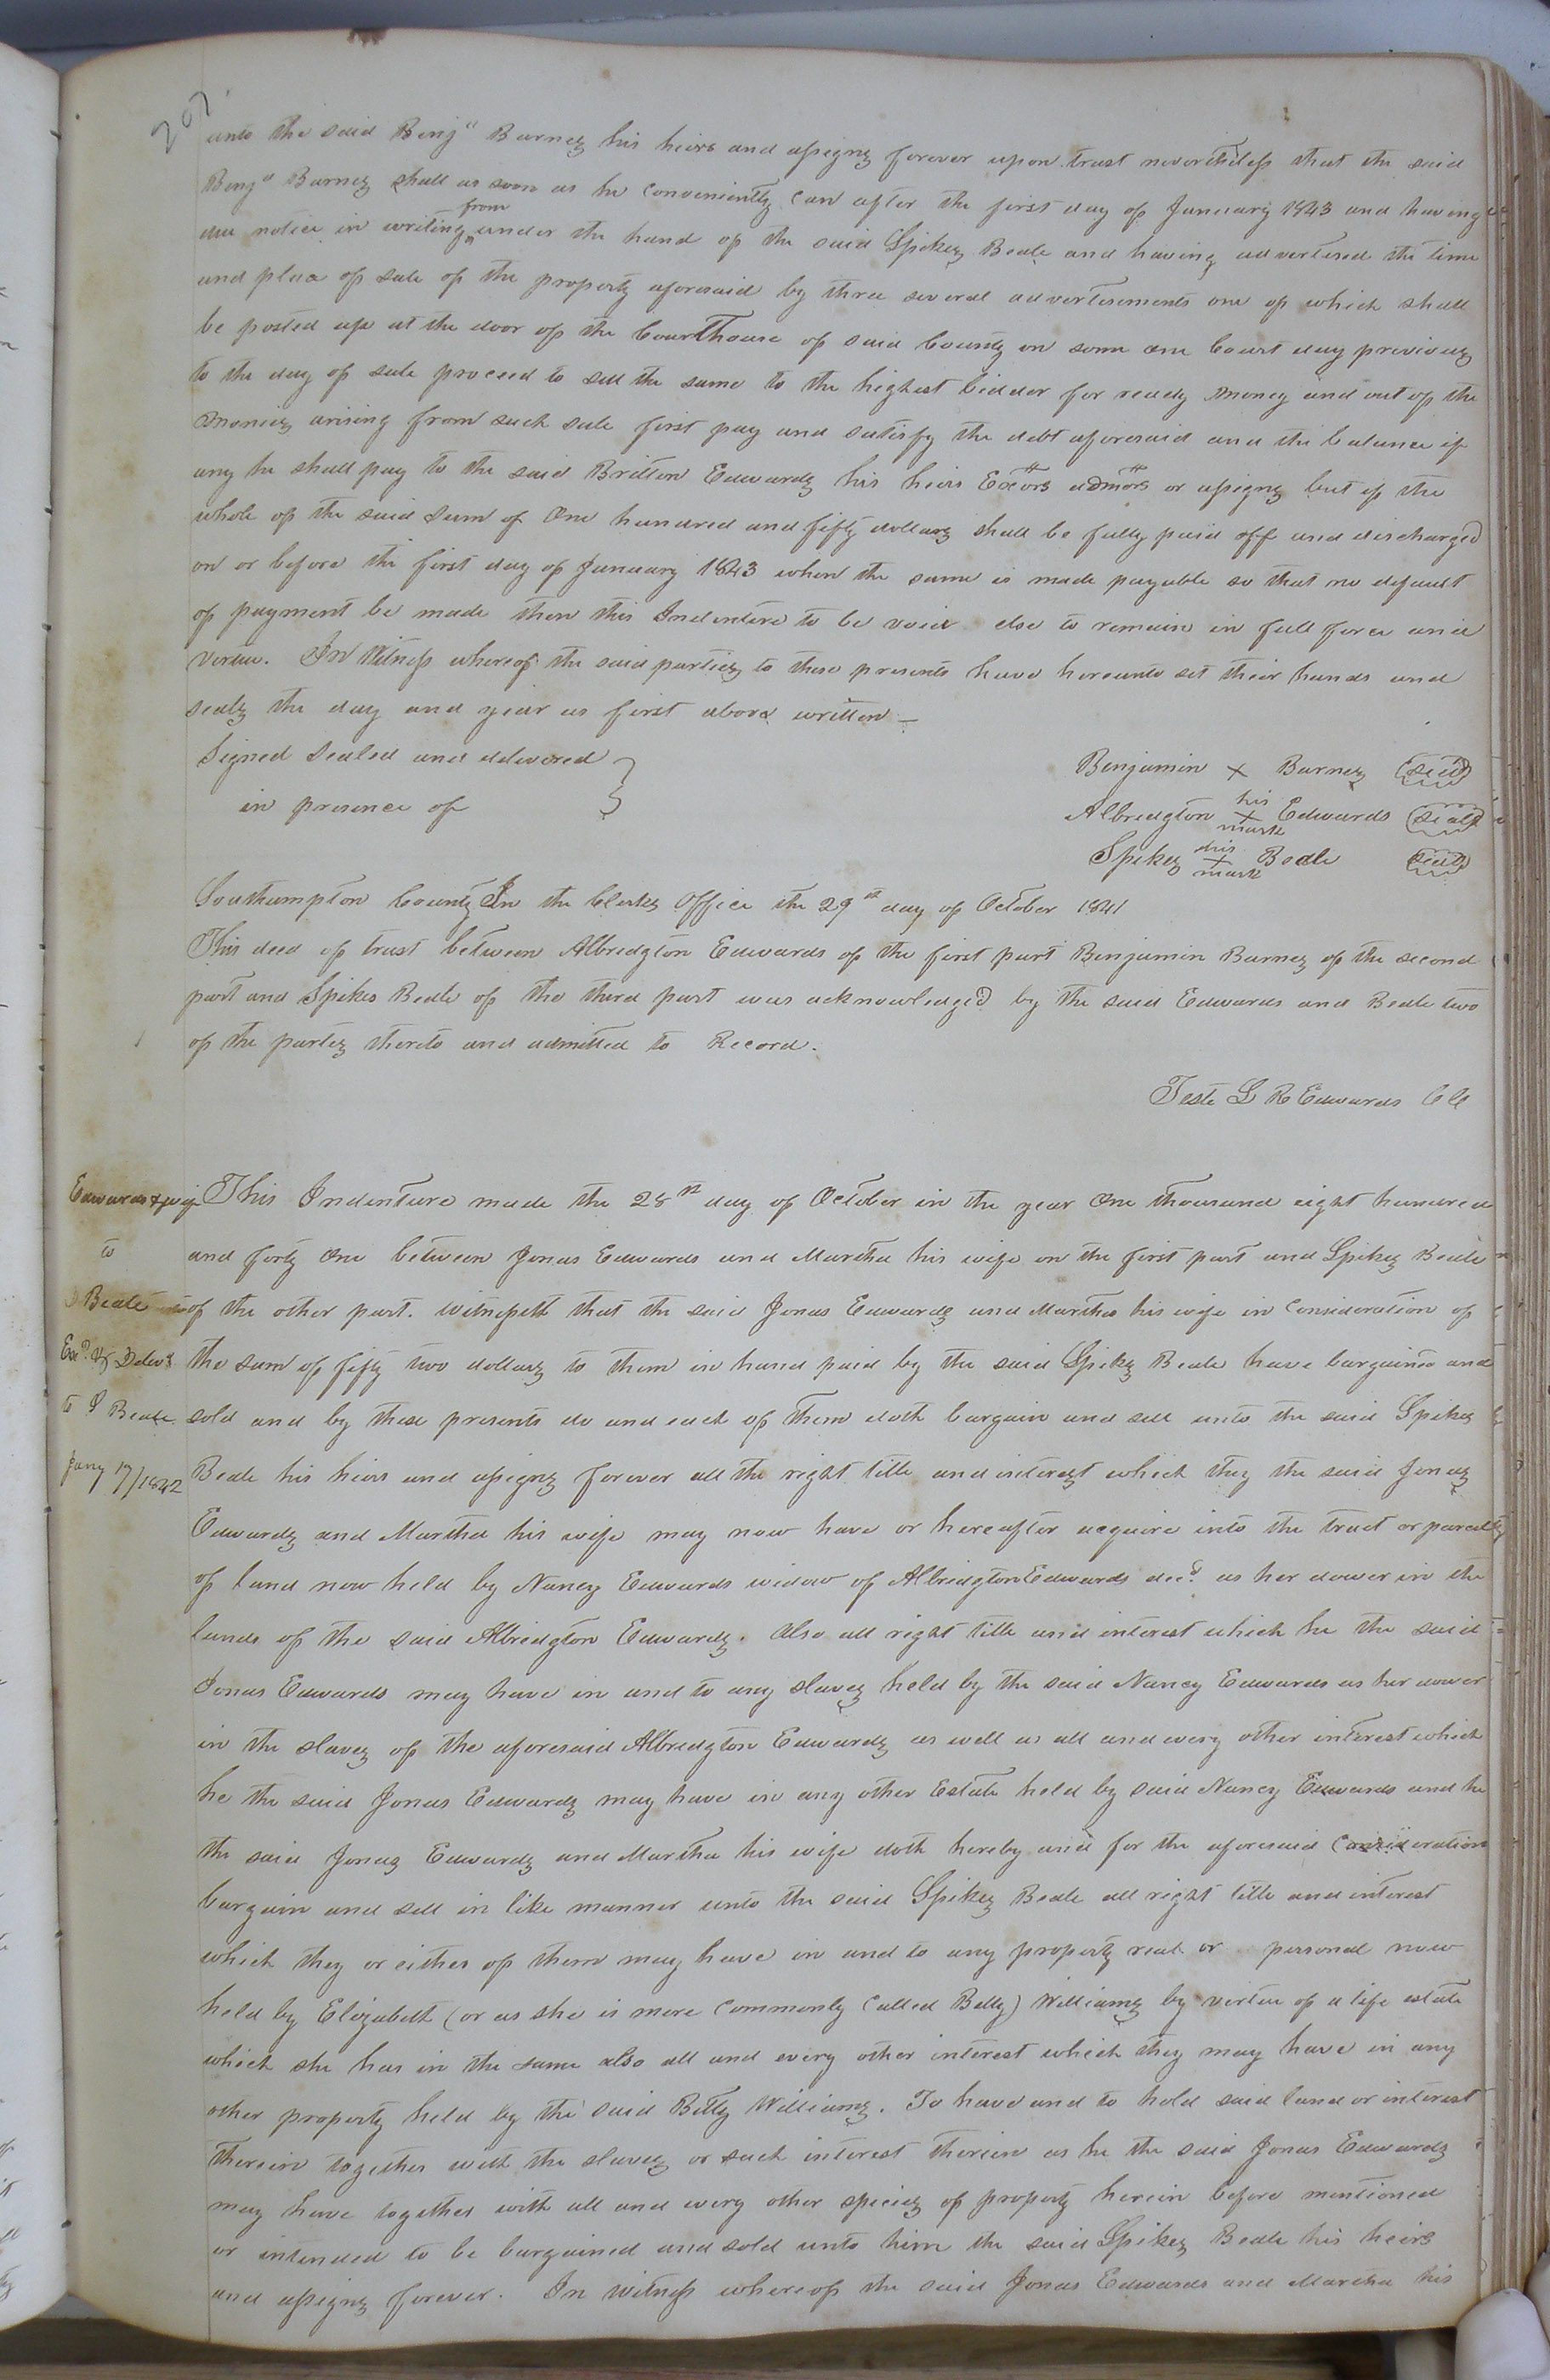 207
unto the said Benja Barnes his heirs and assigns forever upon trust nevertheless that the said
Benja Barnes shall as soon as he conveniently can after the first day of January 1843 and having
due notice in writing from under the hand of the said Spikes Beale and having advertised the time
and place of sale of the property aforesaid by three several advertisements one of which shall
be posted up at the door of the Courthouse of said County on some one Court day previous
to the day of sale proceed to sell the same to the highest bidder for ready money and out of the
monies arising from such sale first pay and satisfy the debt aforesaid and the balance if
any he shall pay to the said Britton Edwards his heirs Exors admors or assigns but if the
whole of the said sum of One hundred and fifty dollars shall be fully paid off and discharged
on or before the first day of January 1843 when the same is made payable so that no default
of payment be made then this Indenture to be void else to remain in full force and
virtue. In Witness whereof the said parties to these presents have hereunto set their hands and
seals the day and year as first above written
Signed Sealed and delivered
in presence of
Benjamin X Barnes (seal)
Albridgton his X mark Edwards (seal)
Spikes his X mark Beale (seal)
Southampton County In the Clerks Office the 29th day of October 1841
This deed of trust between Albridgton Edwards of the first part Benjamin Barnes of the second
part and Spikes Beale of the third part was acknowledged by the said Edwards and Beale two
of the parties thereto and admitted to Record.
Teste L R Edwards CC
Edwards & wife
to
S Beale
Exd. & Delivd
to S Beale
Jany 17/1842
This Indenture made the 28th day of October in the year One thousand eight hundred
and forty One between Jonas Edwards and Martha his wife on the first part and Spikes Beale
of the other part. Witnesseth that the said Jonas Edwards and Martha his wife in Consideration of
the sum of fifty two dollars to them in hand paid by the said Spikes Beale have bargained and
sold and by these presents do and each of them doth bargain and sell unto the said Spikes
Beale his heirs and assigns forever all the right title and interest which they the said Jonas
Edwards and Martha his wife may now have or hereafter acquire into the tract or parcell
of land now held by Nancy Edwards widow of Albridgton Edwards decd. as her dower in the
lands of the said Albridgton Edwards. Also all right title and interest which he the said
Jonas Edwards may have in and to any slaves held by the said Nancy Edwards as her dower
in the slaves of the aforesaid Albridgton Edwards as well as all and every other interest which
he the said Jonas Edwards may have in any other Estate held by said Nancy Edwards and he
the said Jonas Edwards and Martha his wife doth hereby and for the aforesaid Consideration
bargain and sell in like manner unto the said Spikes Beale all right title and interest
which they or either of them may have in and to any property real or personal now
held by Elizabeth (or as she is more commonly called Betty) Williams by virtue of a life estate
which she has in the same also all and every other interest which they may have in any
other property held by the said Betty Williams. To have and to hold said land or interest
therein together with the slaves or such interest therein as he the said Jonas Edwards
may have together with all and every other species of property herein before mentioned
or intended to be bargained and sold unto him the said Spikes Beale his heirs
and assigns forever. In Witness whereof the said Jonas Edwards and Martha his